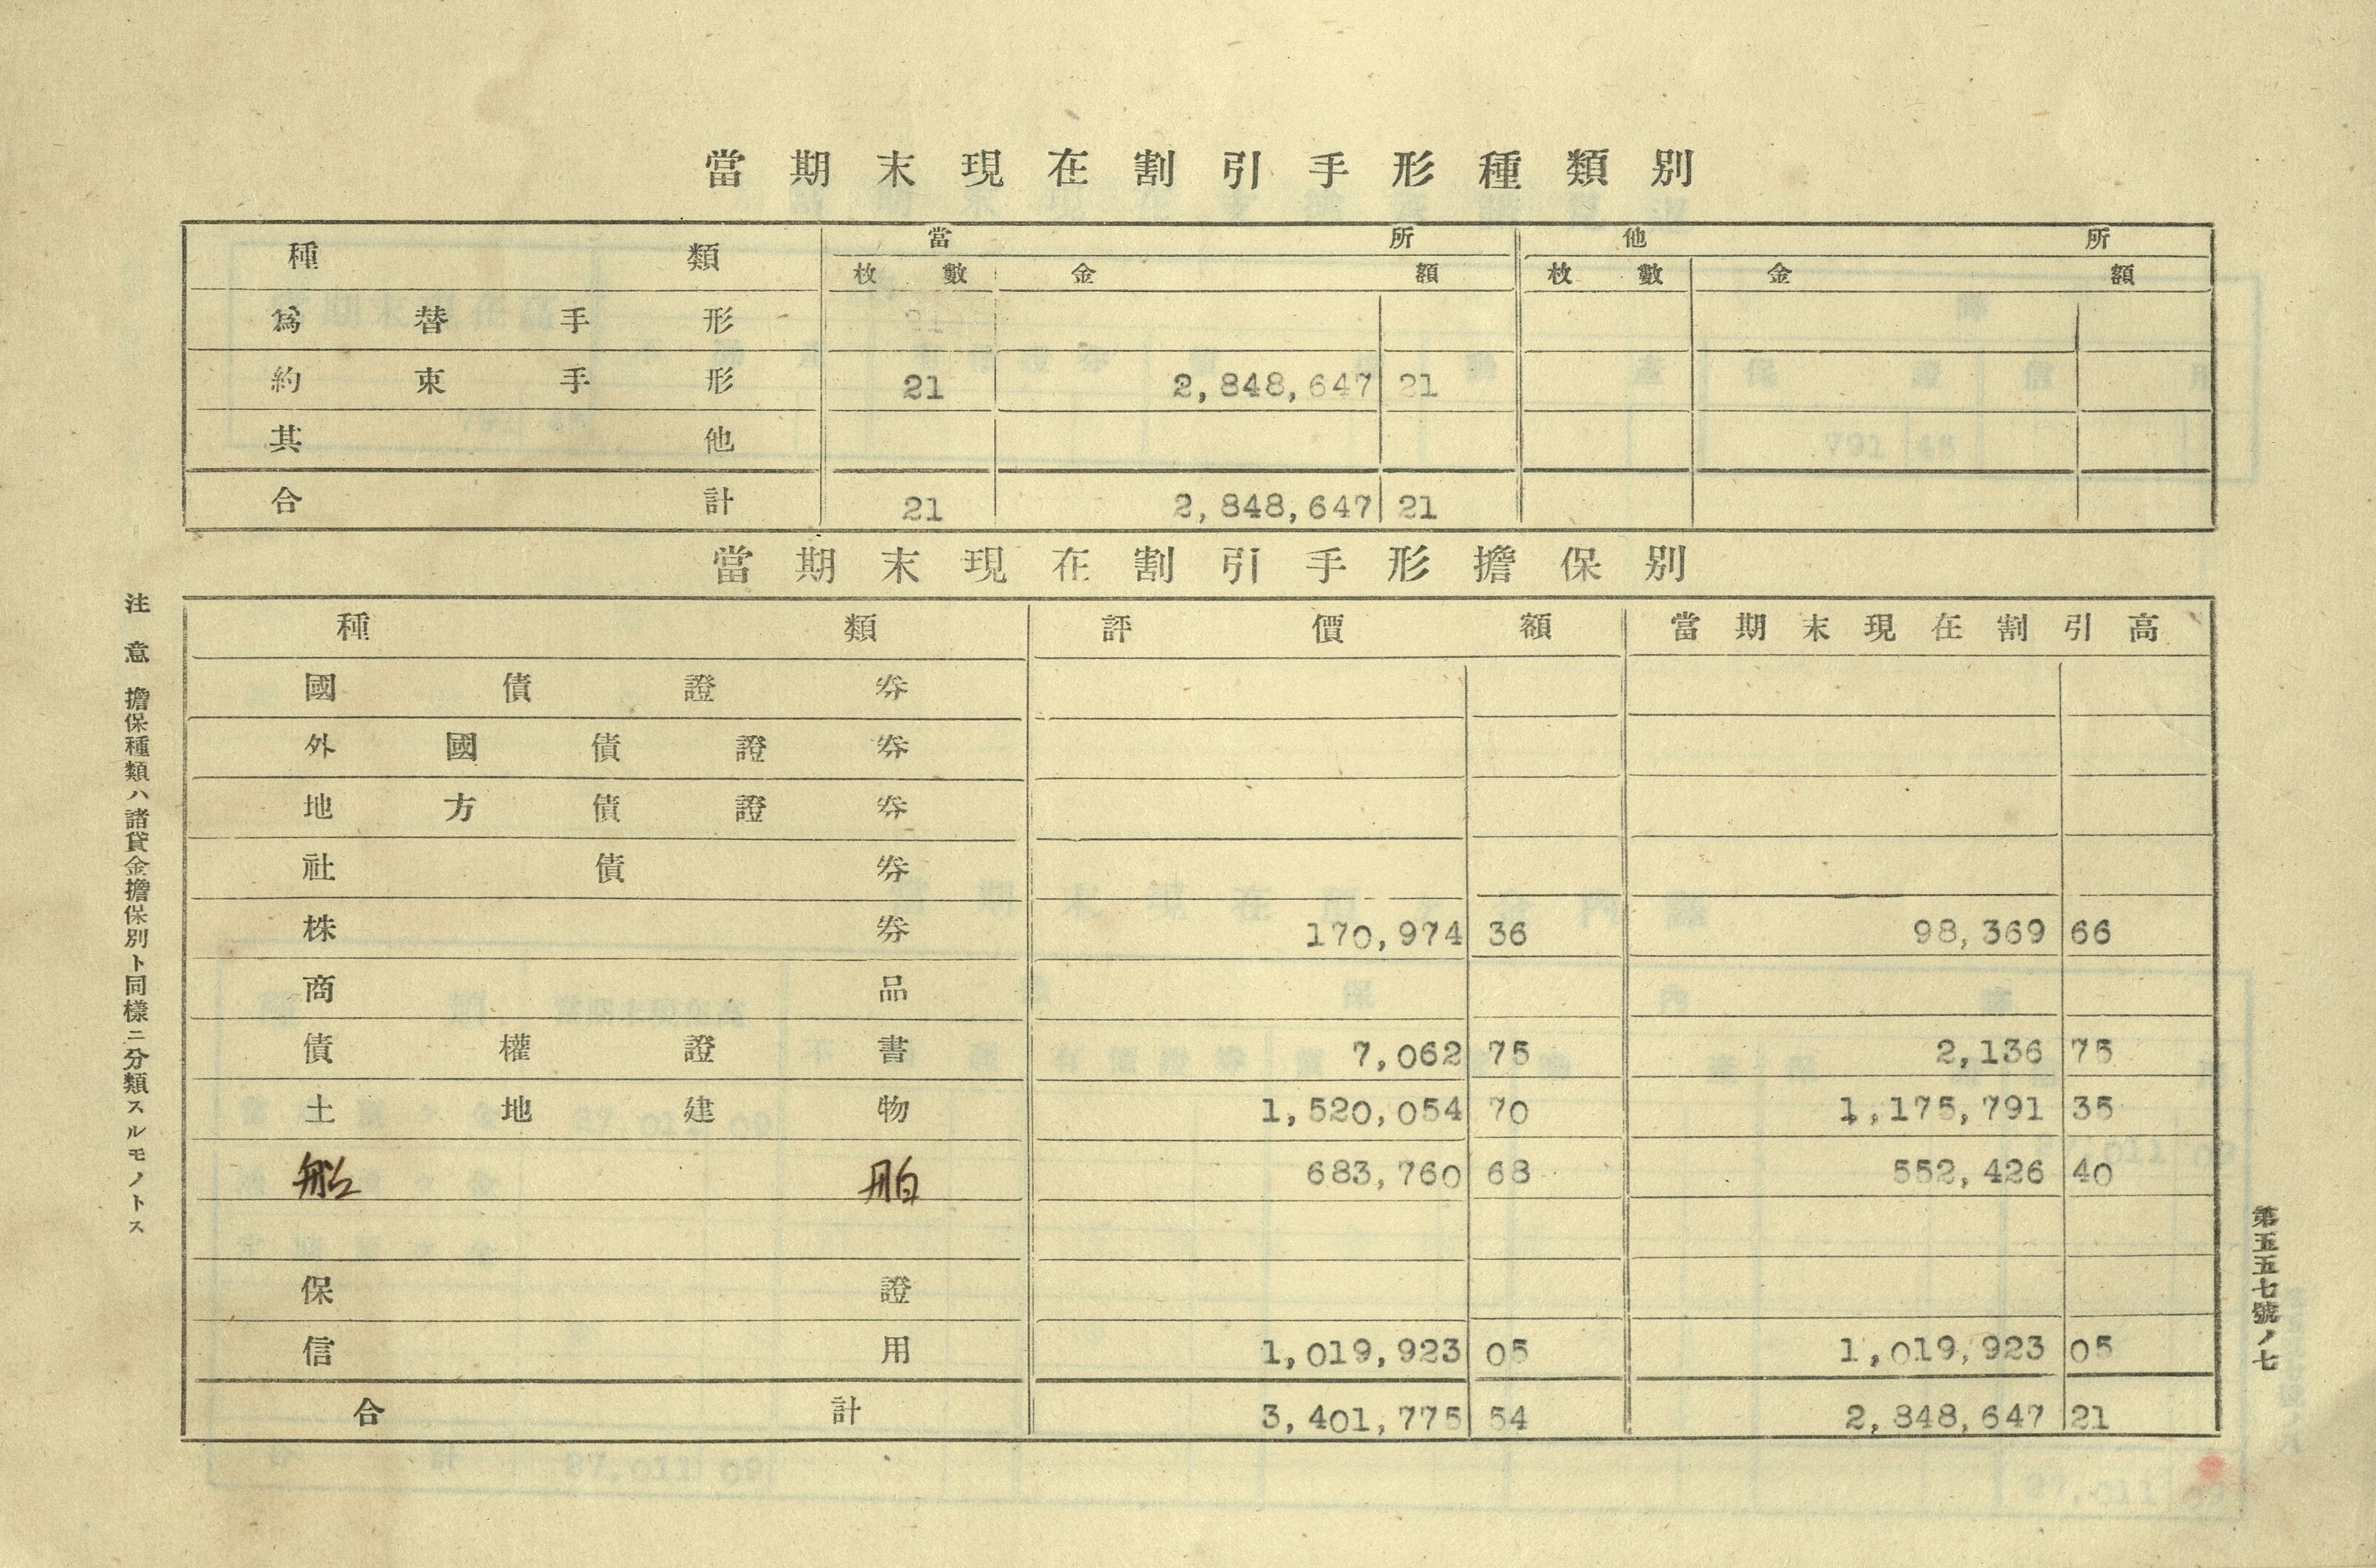 當期末現在割引手形種類別
種類 當所 他所
枚數 金額 枚數 金額
爲替手形
約束手形 21 2,848,647 21
其他
合計 21 2,848,647 21
當期末現在割引手形擔保別
種類 評價額 當期末現在割引高
國債證券
外國債證券
地方債證券
社債券
株券 170,974 36 98,369 66
商品
債權證書 7,062 75 2,136 75
土地建物 1,520,054 70 1,175,791 35
船舶 683,760 68 552,426 40
保證
信用 1,019,923 05 1,019,923 05
合計 3,401,775 54 2,848,647 21
注意 擔保種類ハ諸貸金擔保別ト同樣ニ分類スルモノトス
第五五七號ノ七